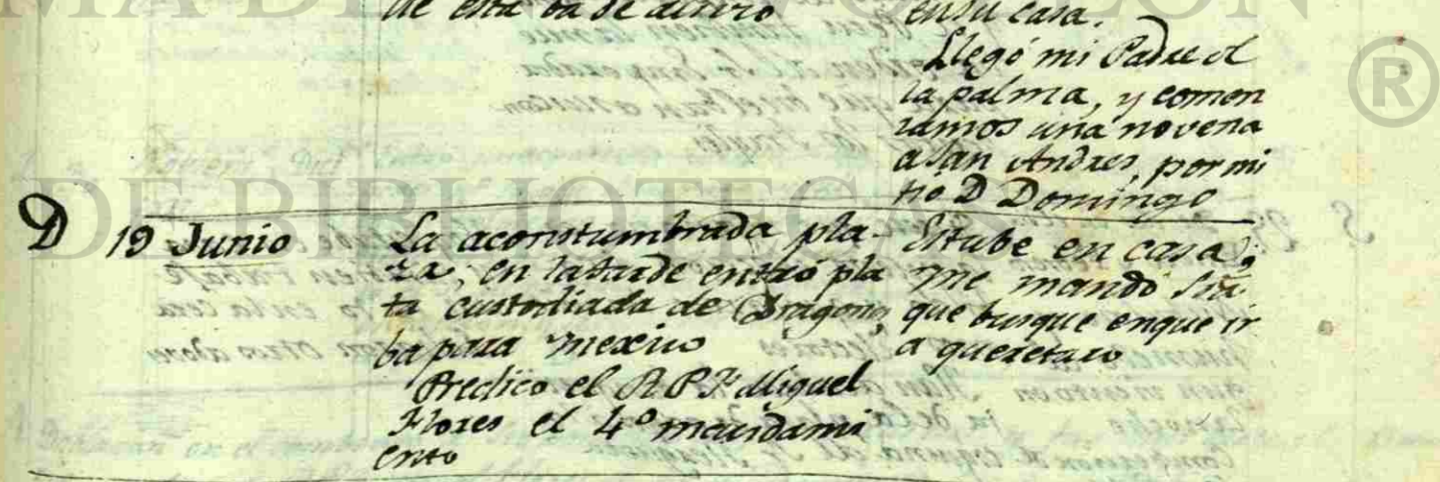 de esta ba de
en su casa.
Llegó mi Padre d
la palma, y comen
zamos una novena
a San Andres, por mi
tio D Domingo
D 19 Junio
La aconstumbrada pla-
za, en la tarde entró pla
ta custodiada de Dragones,
ba para Mexico
Predico el R. P. Fr Miguel
Flores el 4º mandami
ento
Estube en casa;
me mandó
que busque en que ir
a queretaro
DE BIBLIOTECAS
®